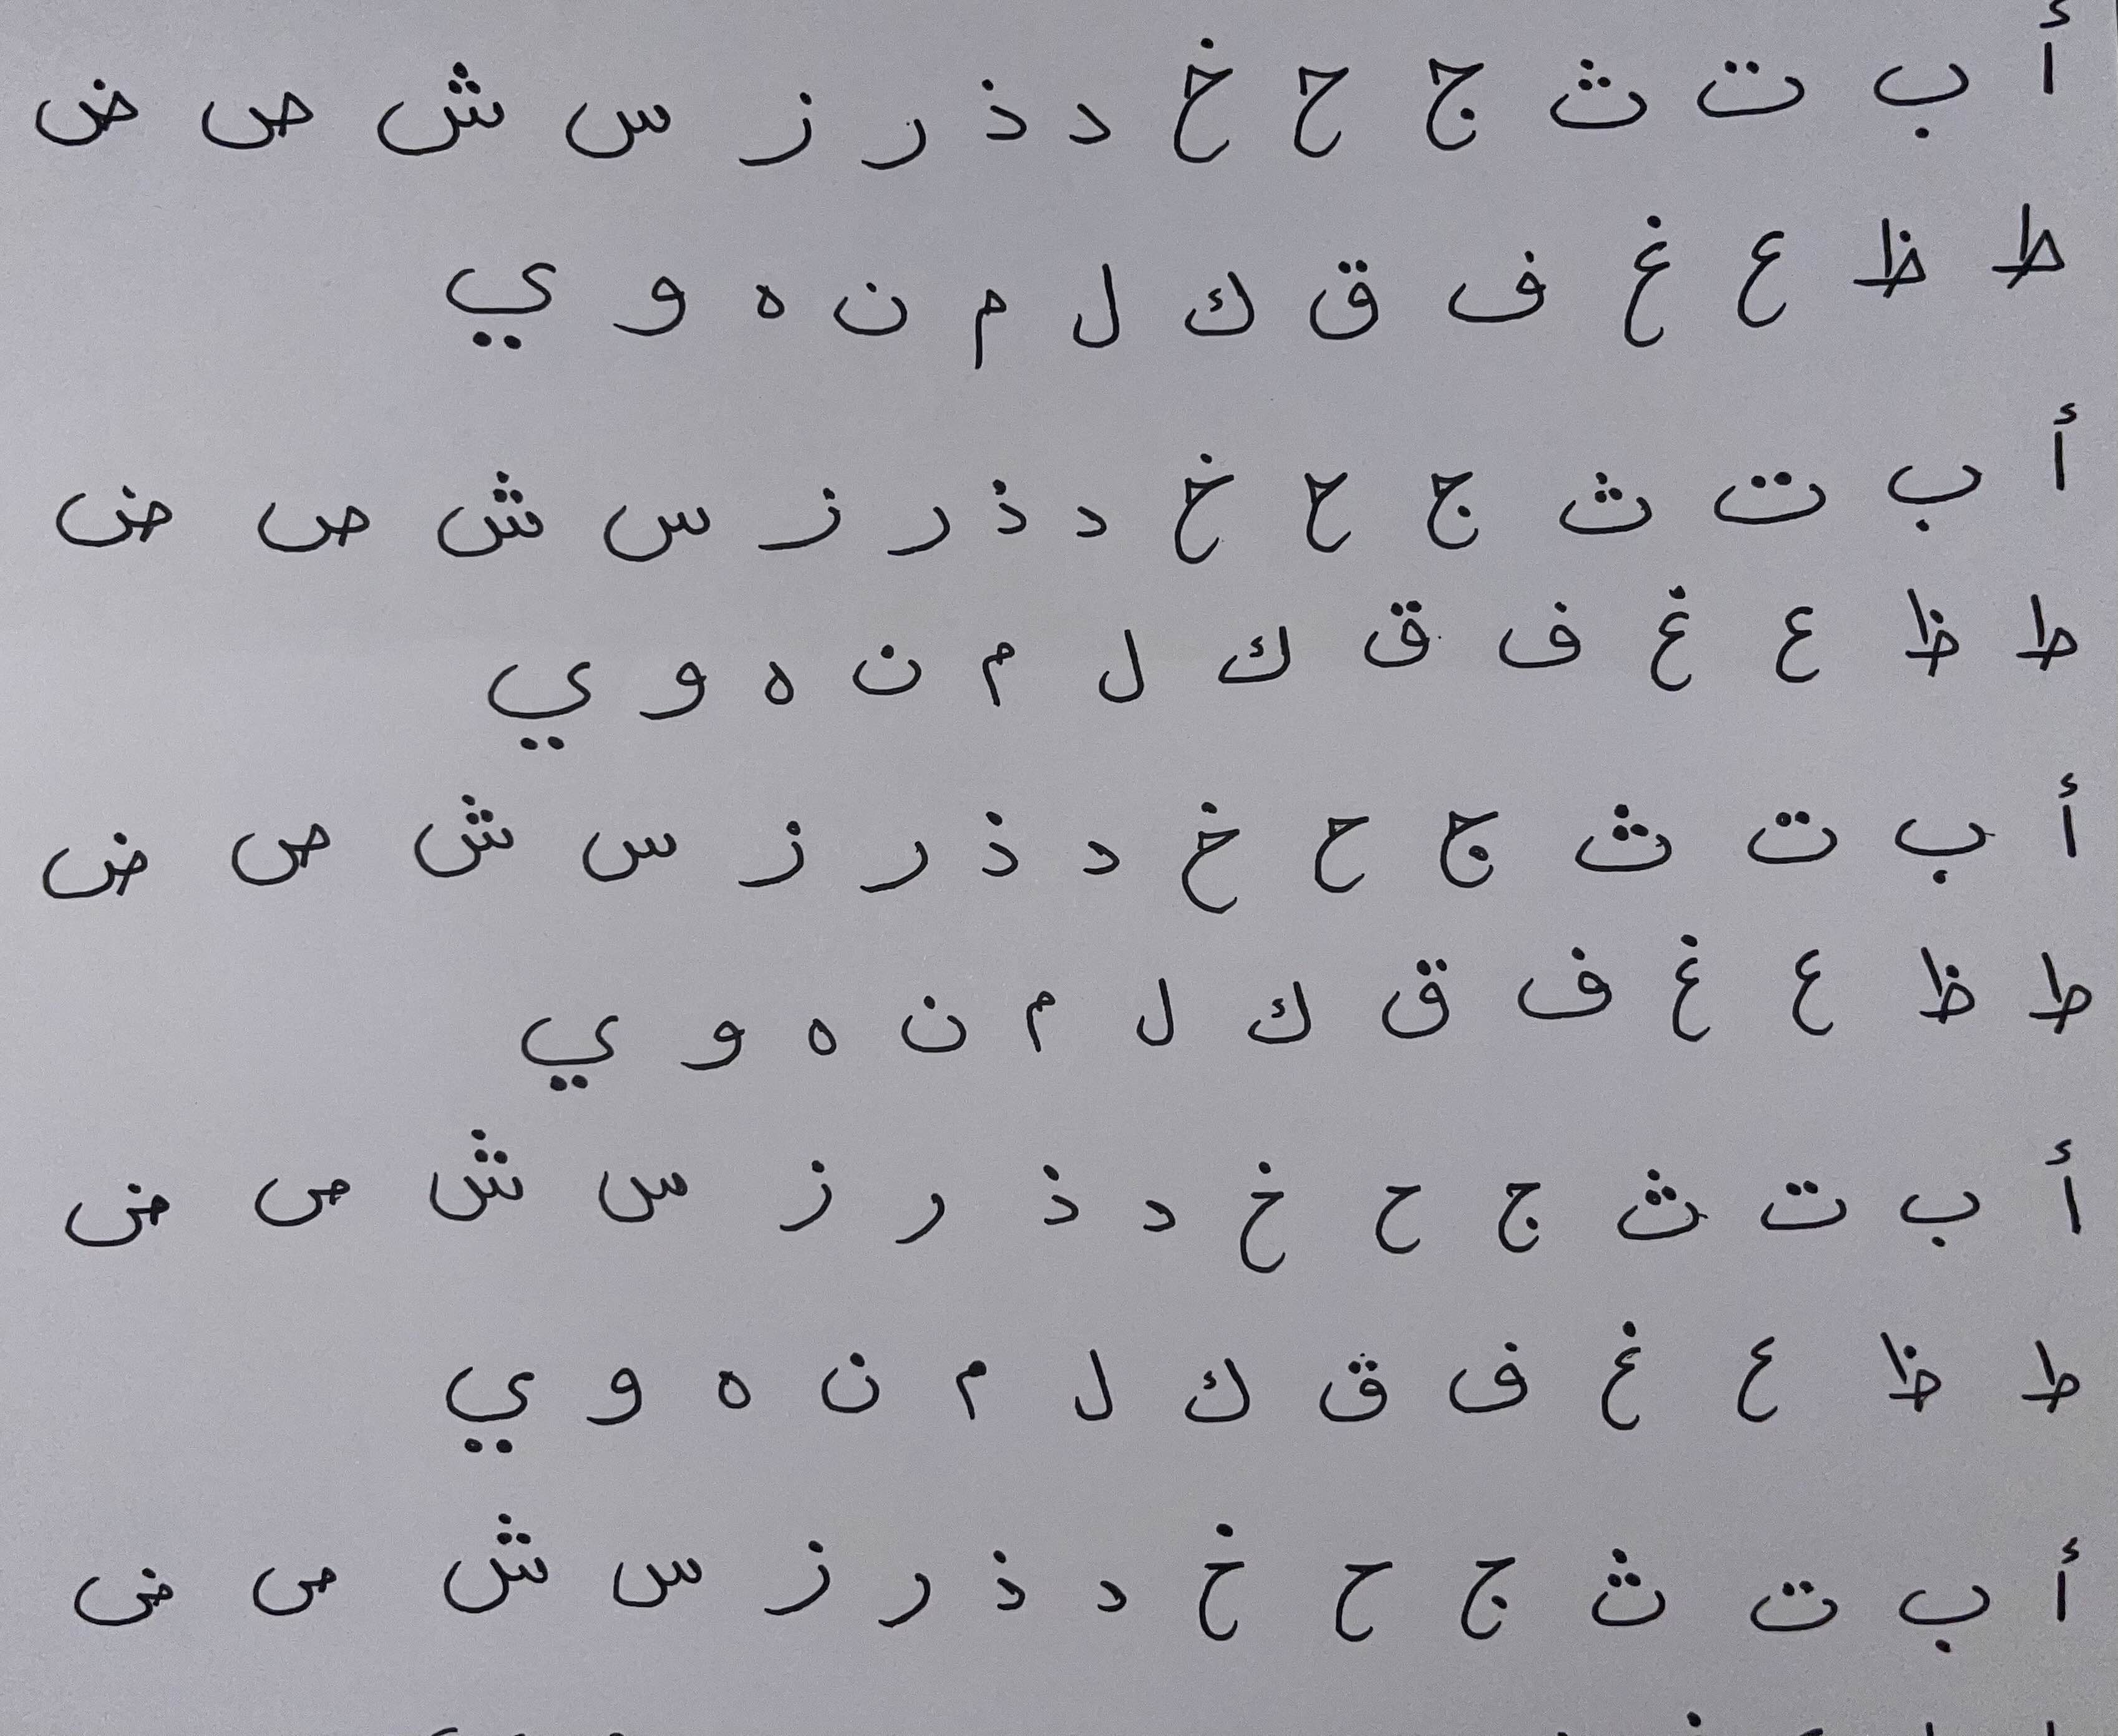 أ ب ت ث ج ح خ د ذ ر ز س ش ص ض
ط ظ ع غ ف ق ك ل م ن ه و ي
أ ب ت ث ج ح خ د ذ ر ز س ش ص ض
ط ظ ع غ ف ق ك ل م ن ه و ي
أ ب ت ث ج ح خ د ذ ر ز س ش ص ض
ط ظ ع غ ف ق ك ل م ن ه و ي
أ ب ت ث ج ح خ د ذ ر ز س ش ص ض
ط ظ ع غ ف ق ك ل م ن ه و ي
أ ب ت ث ج ح خ د ذ ر ز س ش ص ض